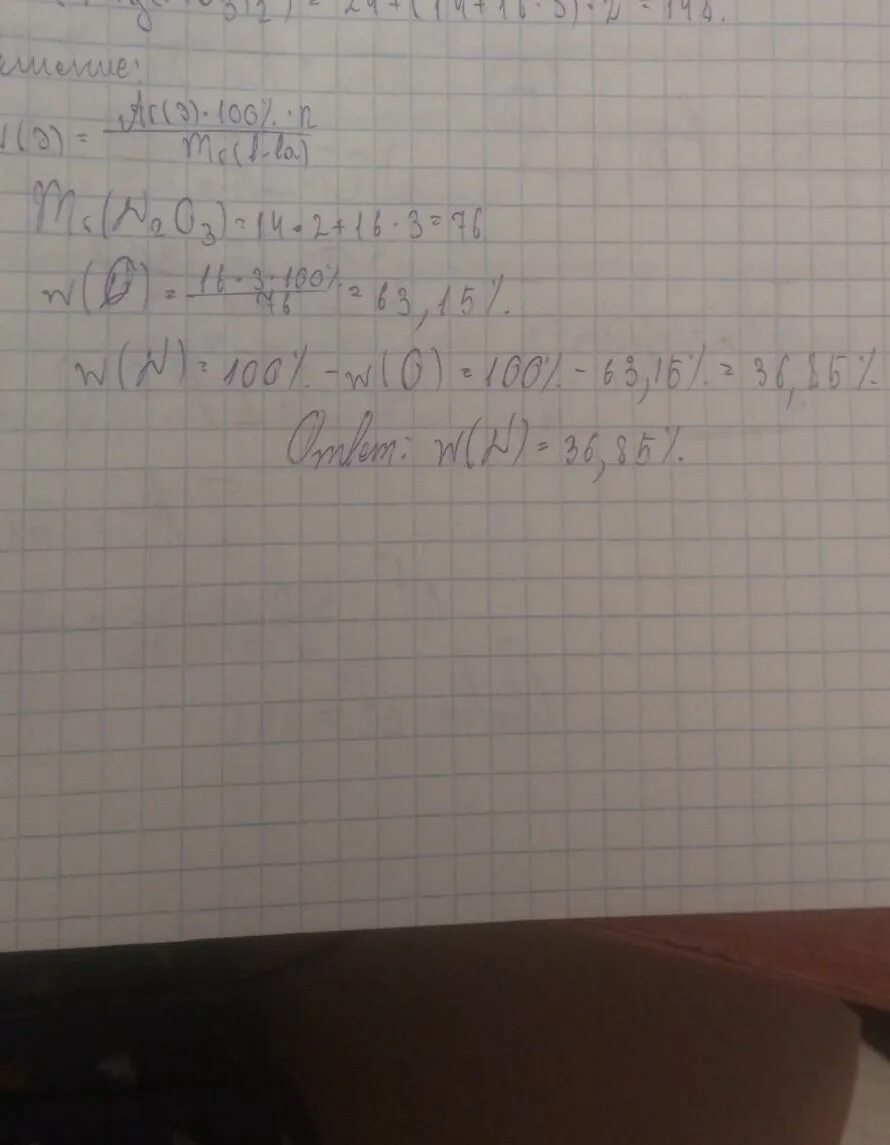 3)2) = 24 + (14 + 16 · 3) · 2 = 148.
шение:
(э) = Ar(э) · 100% · n / Mr(в-ва)
Mr(N2O3) = 14 · 2 + 16 · 3 = 76
w(O) = 16 · 3 · 100% / 76 = 63,15%.
w(N) = 100% - w(O) = 100% - 63,15% = 36,85%.
Ответ: w(N) = 36,85%.